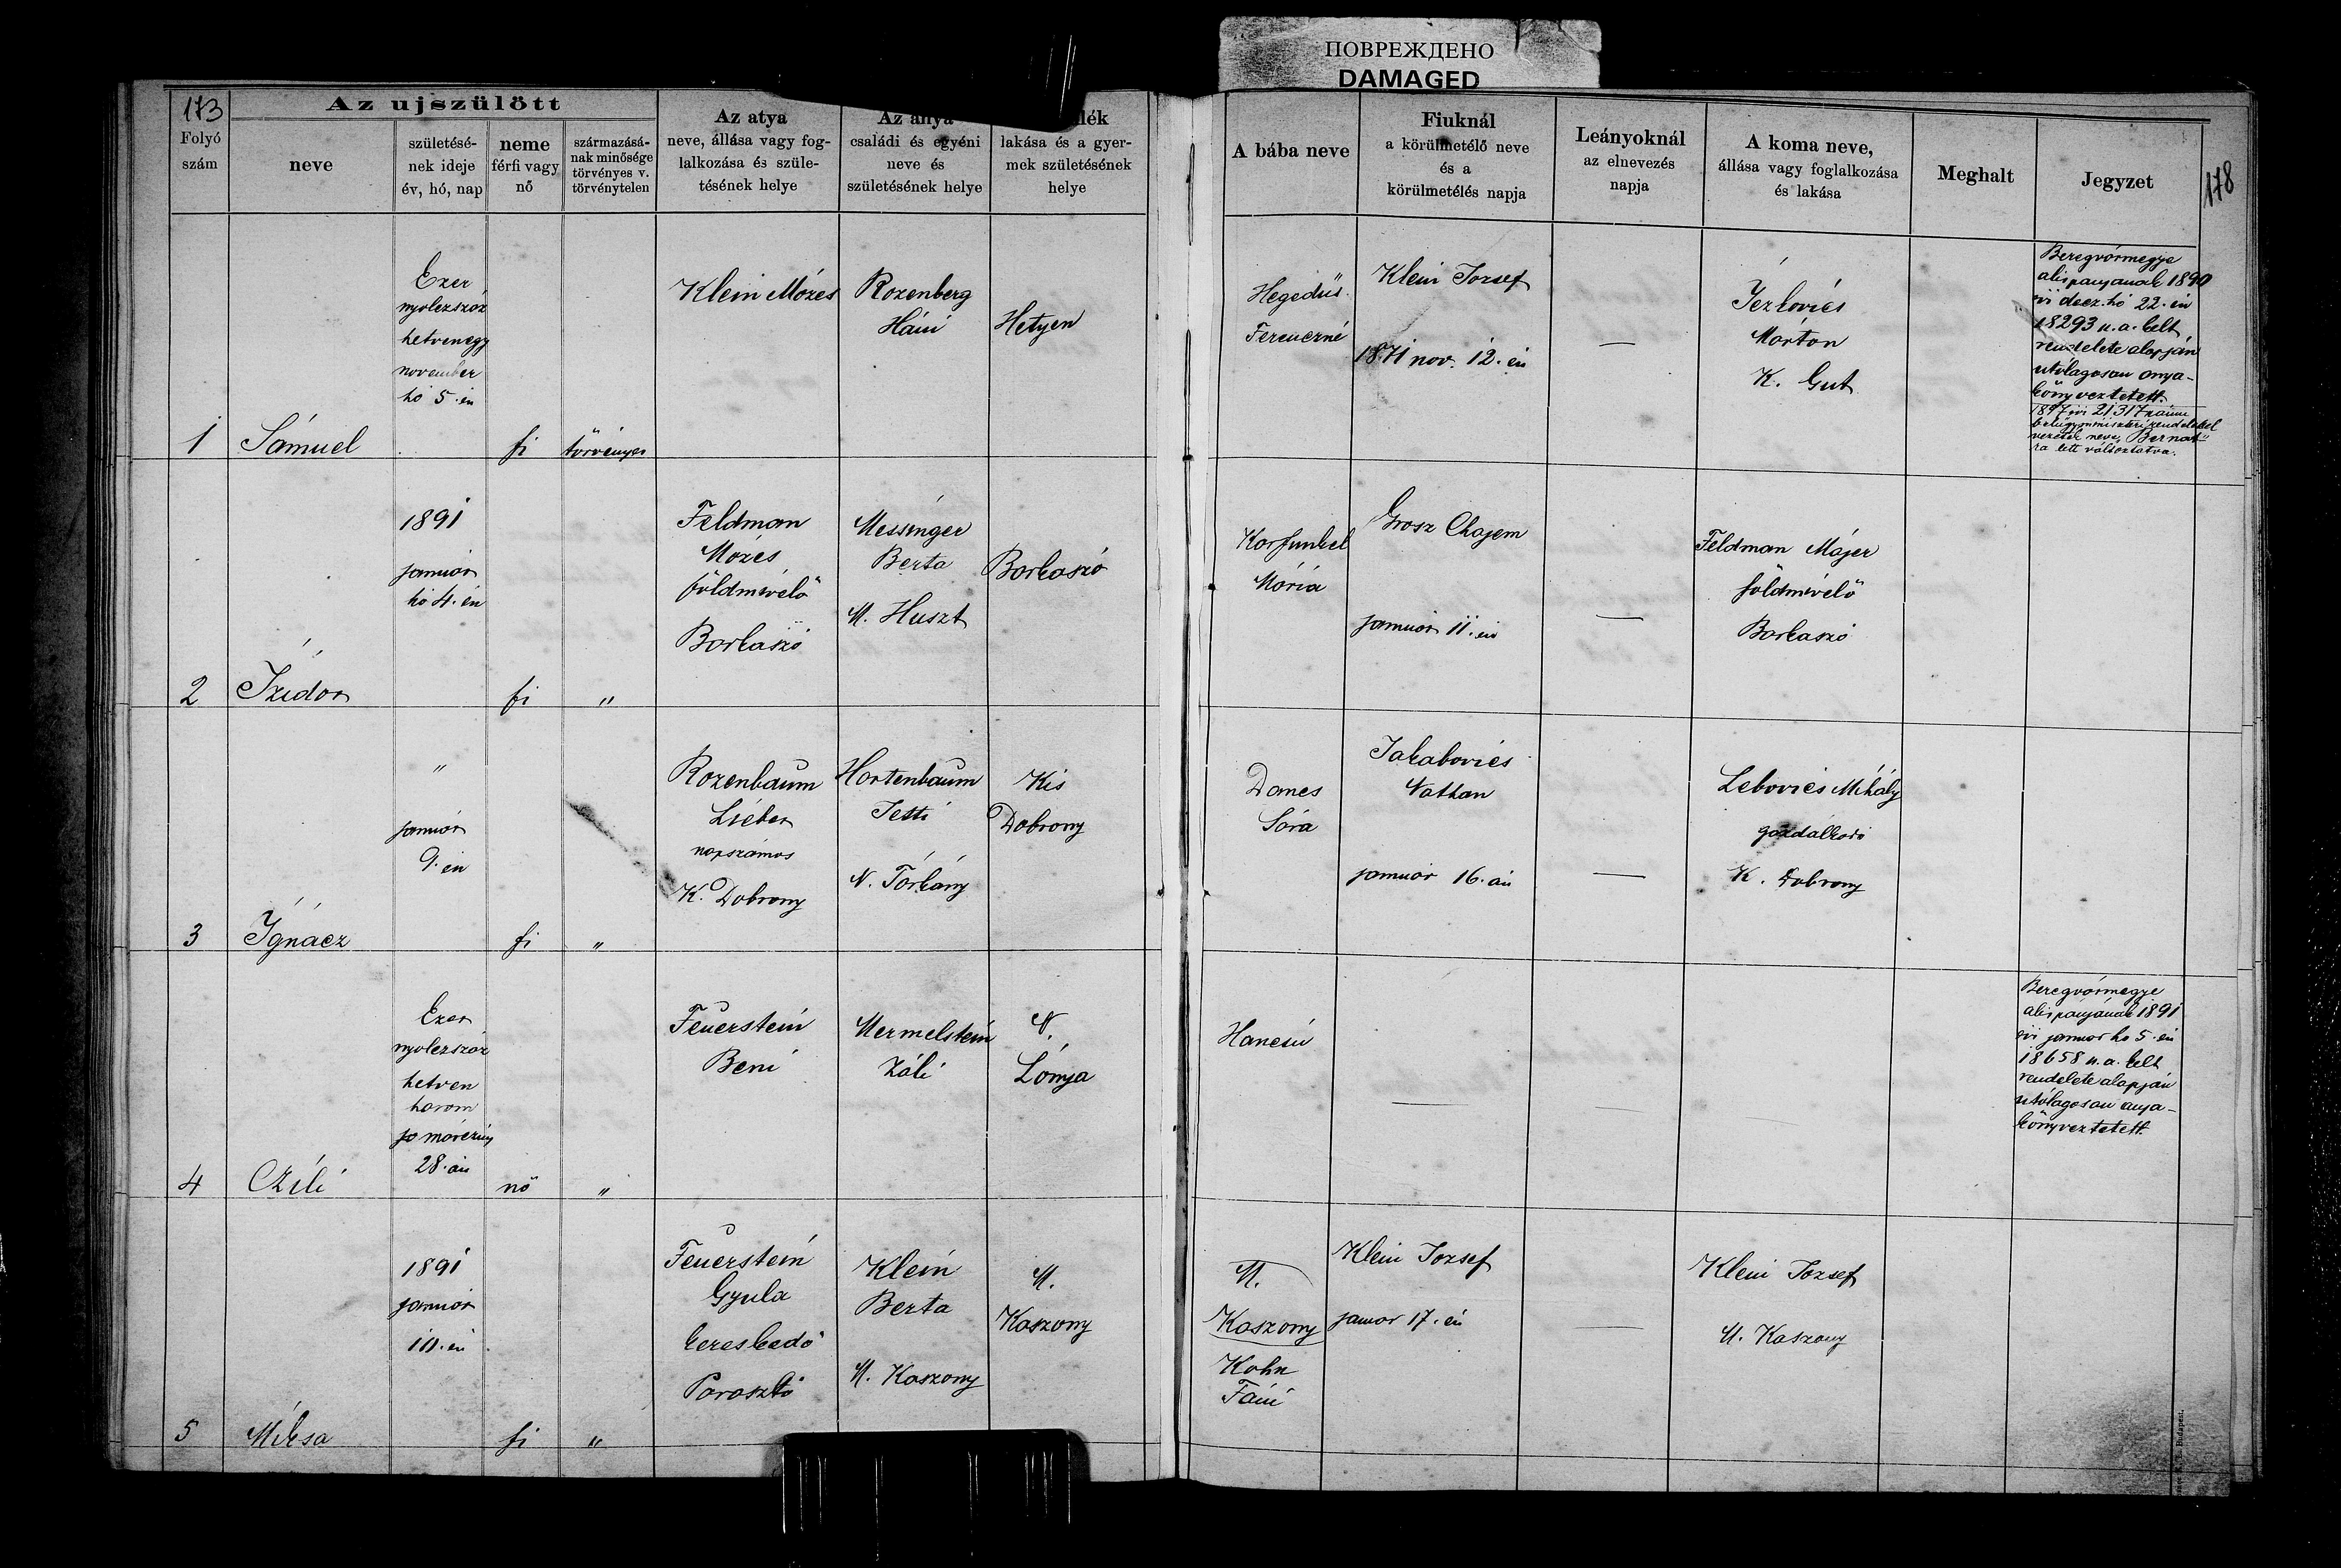 ПОВРЕЖДЕНО
DAMAGED
173
Az ujszülött
Folyó
szám
neve
születésé-
nek ideje
év, hó, nap
neme
férfi vagy
nő
származásá-
nak minősége
törvényes v.
törvénytelen
Az atya
neve, állása vagy fog-
lalkozása és szüle-
tésének helye
Az anya
családi és egyéni
neve és
születésének helye
lék
lakása és a gyer-
mek születésének
helye
A bába neve
Fiuknál
a körülmetélő neve
és a
körülmetélés napja
Leányoknál
az elnevezés
napja
A koma neve,
állása vagy foglalkozása
és lakása
Meghalt
Jegyzet
178
1
Sámuel
Ezer
nyolczszáz
hetvenegy
november
hó 5.én
fi
törvényes
Klein Mózes
Rozenberg
Háni
Hetyen
Hegedüs
Ferenczné
Klein Jozsef
1871 nov. 12.én
—
Iczkovics
Márton
K. Gut
Beregvármegye
alispanyanak 1890
évi decz. hó 22.én
18293 u.a. kelt
rendelete alapján
utólagosan anya-
könyveztetett.
1897 évi 21317 számu
belügyministeri rendelettel
vezeték neve, Bernát"
ra lett változtatva.
2
Izidor
1891
január
hó 4.én
fi
"
Feldman
Mozés
földmívelő
Barkaszó
Messinger
Berta
M. Huszt
Barkaszó
Karfunkel
Mária
Grosz Chajem
január 11.én
—
Feldman Májer
földmívelő
Barkaszó
3
Ignácz
"
január
9.én
fi
"
Rozenbaum
Liéber
napszámos
K. Dobrony
Hartenbaum
Jetti
N. Tárkány
Kis
Dobrony
Dancs
Sára
Jakabovics
Nathan
január 16.án
—
Lebovics Mihály
gazdálkodó
K. Dobrony
4
Czili
Ezer
nyolczszáz
hetven
három
márczius
28.án
nő
"
Feuerstein
Beni
Mermelstein
Záli
N.
Lónya
Hancsu
—
Beregvármegye
alispanjának 1891
évi január hó 5.én
18658 u.a. kelt
rendelete alapján
utólagosan anya-
könyveztetett.
5
Miksa
1891
január
10.én
fi
"
Feuerstein
Gyula
kereskedő
Poroszló
Klein
Berta
M. Kaszony
M.
Kaszony
M.
Kaszony
Kohn
Fáni
Klein Jozsef
január 17.én
—
Klein Jozsef
M. Kaszony